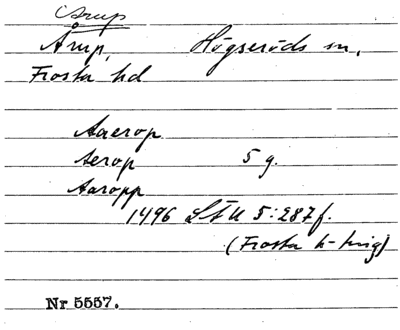 Årup
Årup, Högseröds sn,
Frosta hd
Aaerop
Aerop 5 g.
Aaropp
1496 LÅU 5:287 f.
(Frosta h-ting)
Nr 5557.